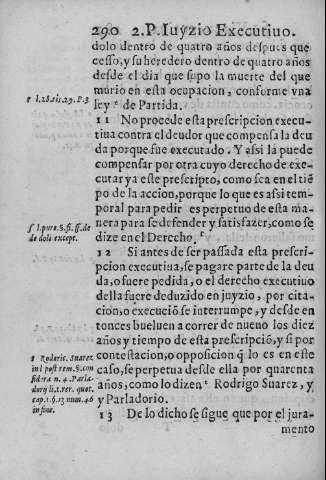 290 2.P. Iuyzio Executiuo.
dolo dentro de quatro años despues que
cesso, y su heredero dentro de quatro años
desde el dia que supo la muerte del que
murio en esta ocupacion, conforme vna
ley r de Partida.
r l.28.tit.29.P.3
11 No procede esta prescripcion execu-
tiua contra el deudor que compensa la deu
da porque fue executado. Y assi la puede
compensar por otra cuyo derecho de exe-
cutar ya este prescripto, como sea en el tiē
po de la accion, porque lo que es assi tem-
poral para pedir es perpetuo de esta ma-
nera para se defender y satisfazer, como se
dize en el Derecho. ſ
ſ l.pure.§.fi.ff.de
de doli except.
12 Si antes de ser passada esta prescri-
pcion executiua, se pagare parte de la deu
da, o fuere pedida, o el derecho executiuo
della fuere deduzido en juyzio, por cita-
cion, o execució se interrumpe, y desde en
tonces bueluen a correr de nueuo los diez
años y tiempo de esta prescripció, y si por
contestacion, o opposicion q̃ lo es en este
caso, se perpetua desde ella por quarenta
años, como lo dizen t Rodrigo Suarez, y
y Parladorio.
t Roderic. Suarez
in l post rem.§.con
sidera n. 4. Parla-
dor ij l.t.rer. quot.
cap.1.§.12 num.46
in fine.
13 De lo dicho se sigue que por el jura-
mento